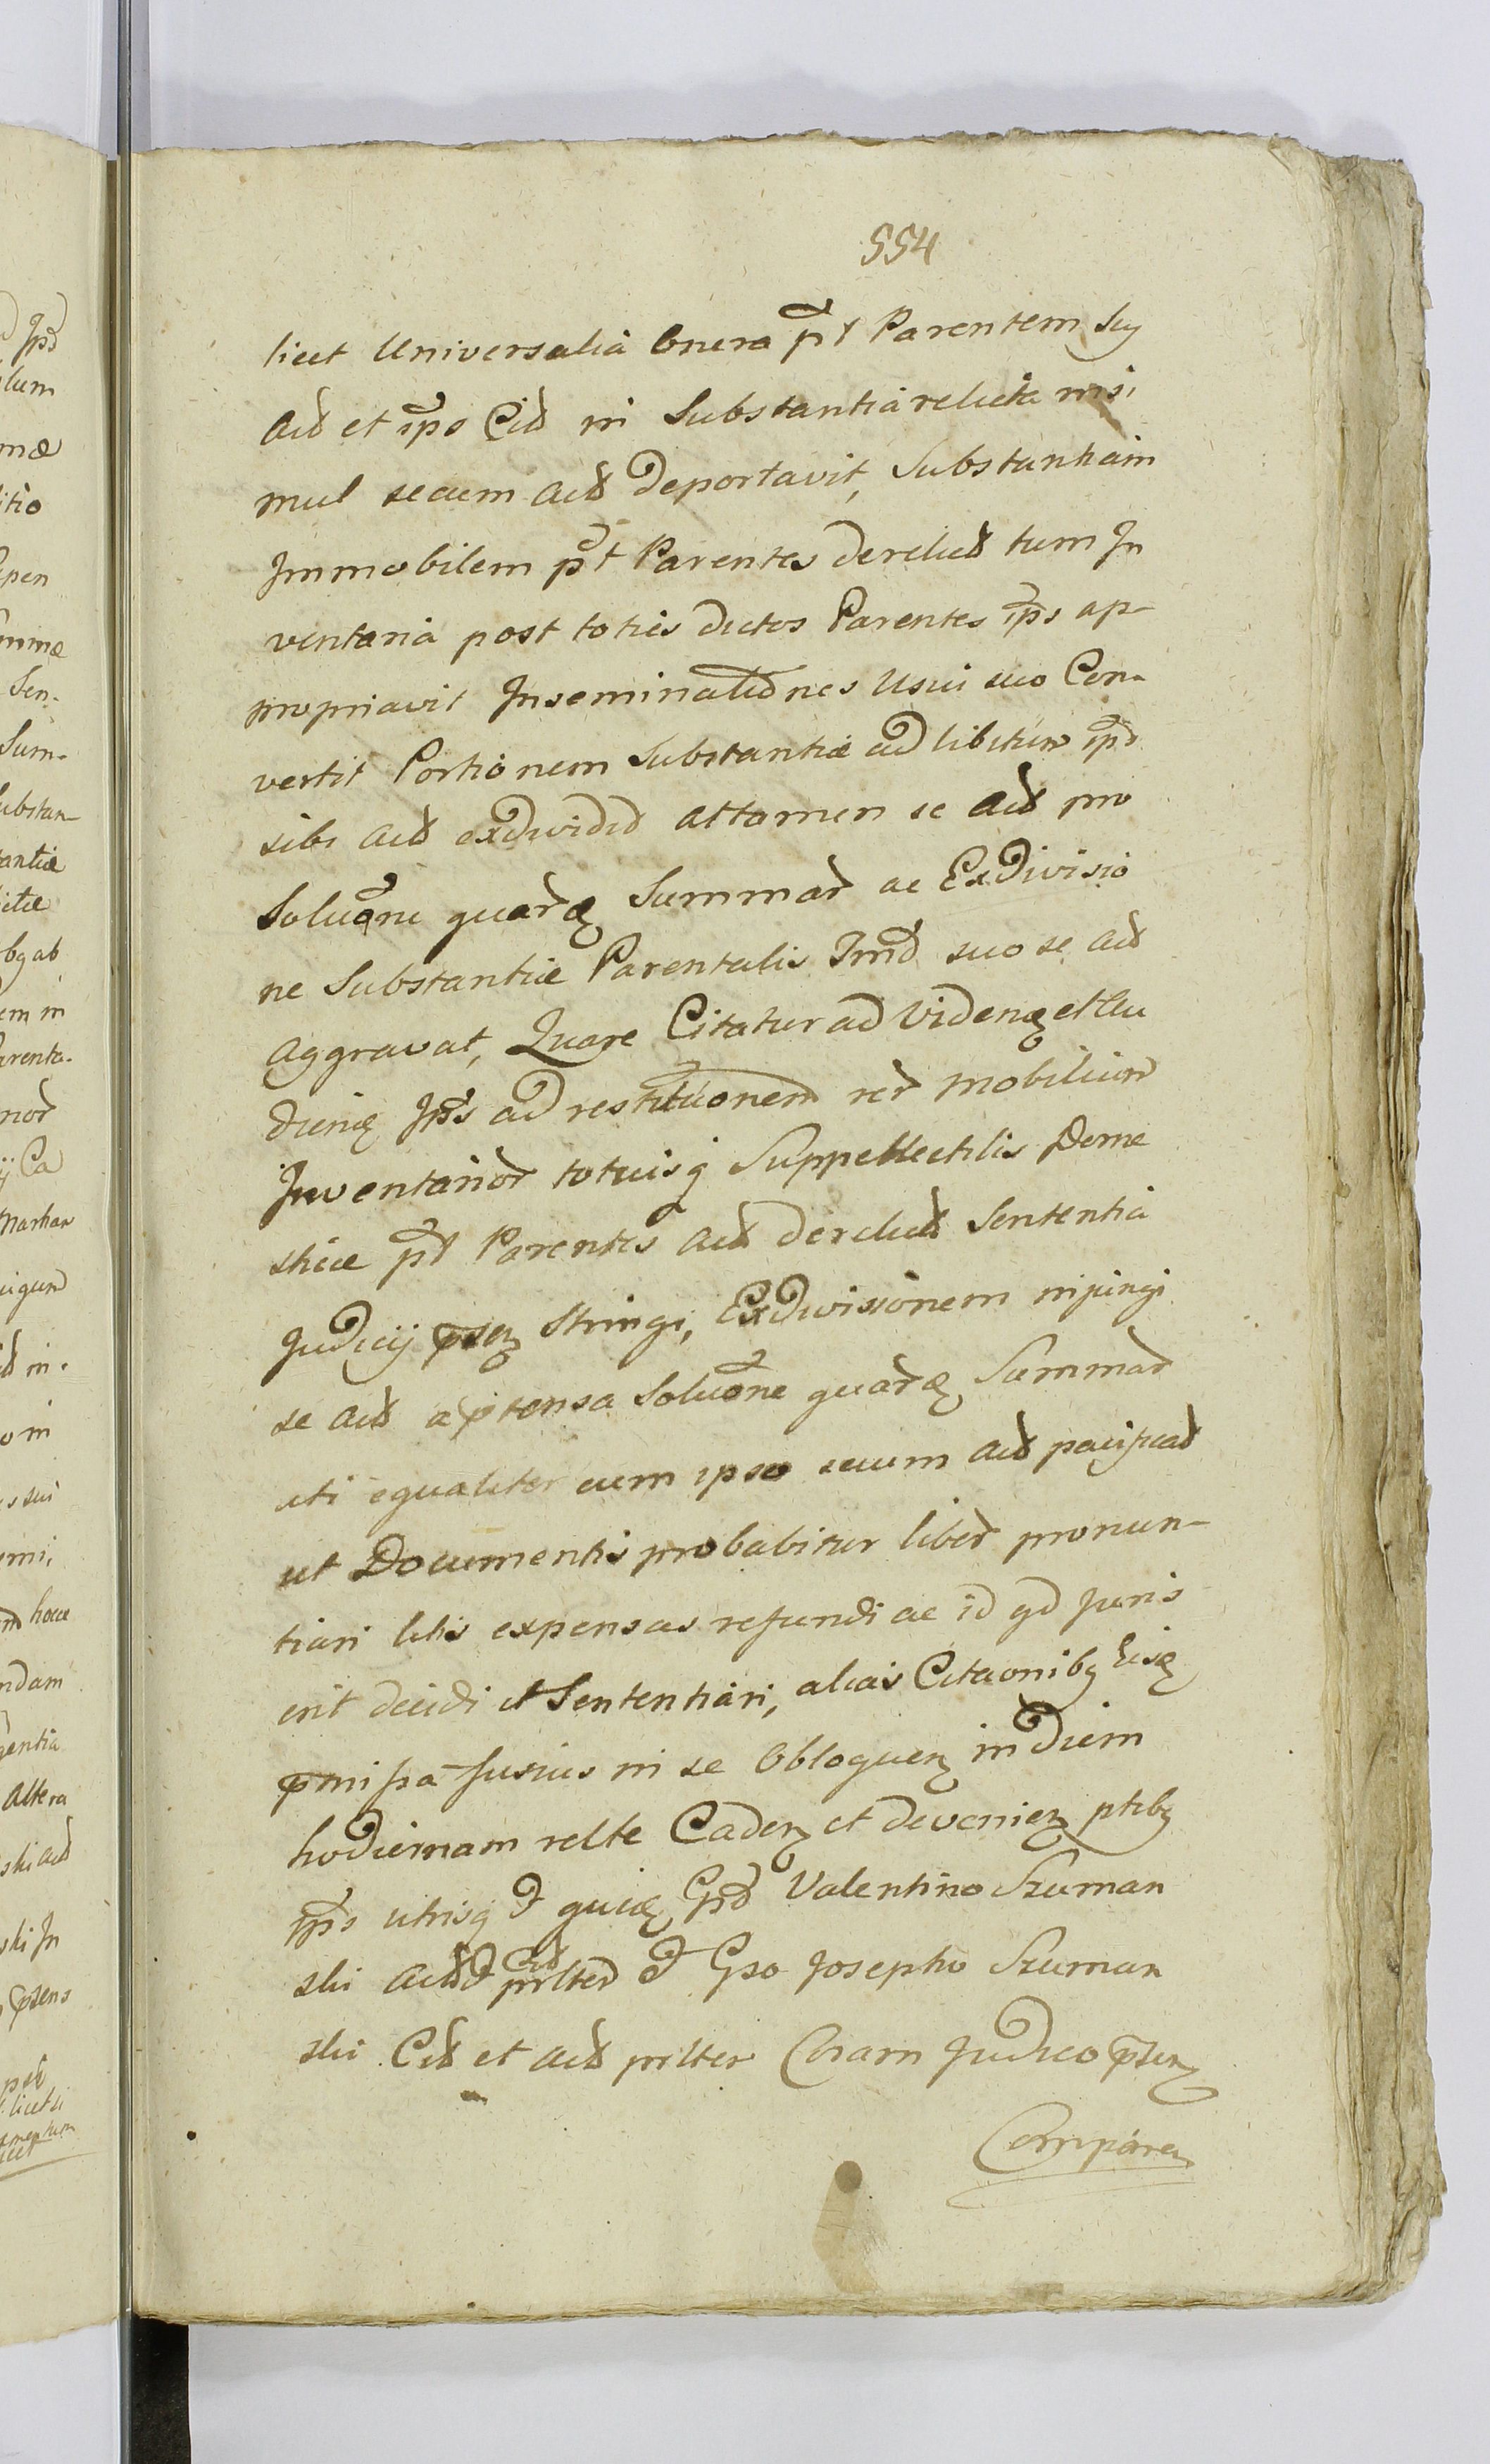 554
licet Universalia Onera pt Parentem suu
Actd et ips Citd in Substantia relicta insi
mul secum Actd deportavit, Substantiam
Immobilem pt Parentes derelictd tum In
ventaria post toties dictos Parentes ips ap-
propriavit Inseminationes Usui suo Con-
vertit Portionem Substantiæ ad libitum ips
sibi Actd exdividid attamen se Actd pro
Soluone quarq Summar ac Exdivisio
ne Substantiæ Parentalis Imd suo se Actd
Aggravat, Quare Citatur ad Videnq et Au
dienq Ips ad restitutionem rer mobilium
Inventarior totiusq Suppellectilis Dome
sticæ pt Parentes Actd derelictd Sententia
Judicij psen Stringi, Exdivisionem injungi
se Actd a ptensa Soluone quarq Summar
uti equaliter cum ipso secum Actd pacificatd
ut Documentis probabitur liber pronun-
tiari litis expensas refundi ac id qd Juris
erit decidi et Sententiari, alias Citaonibq Eisq
pmissa fusius in se Obloquen in diem
hodiernam relte Caden et devenien ptibq
ips utrisq et quiq Gnd Valentino Szuman
ski Actd et Citd prlter et Gso Josepho Szuman
ski Citd et Actd prlter Coram Judico psen
Comparen